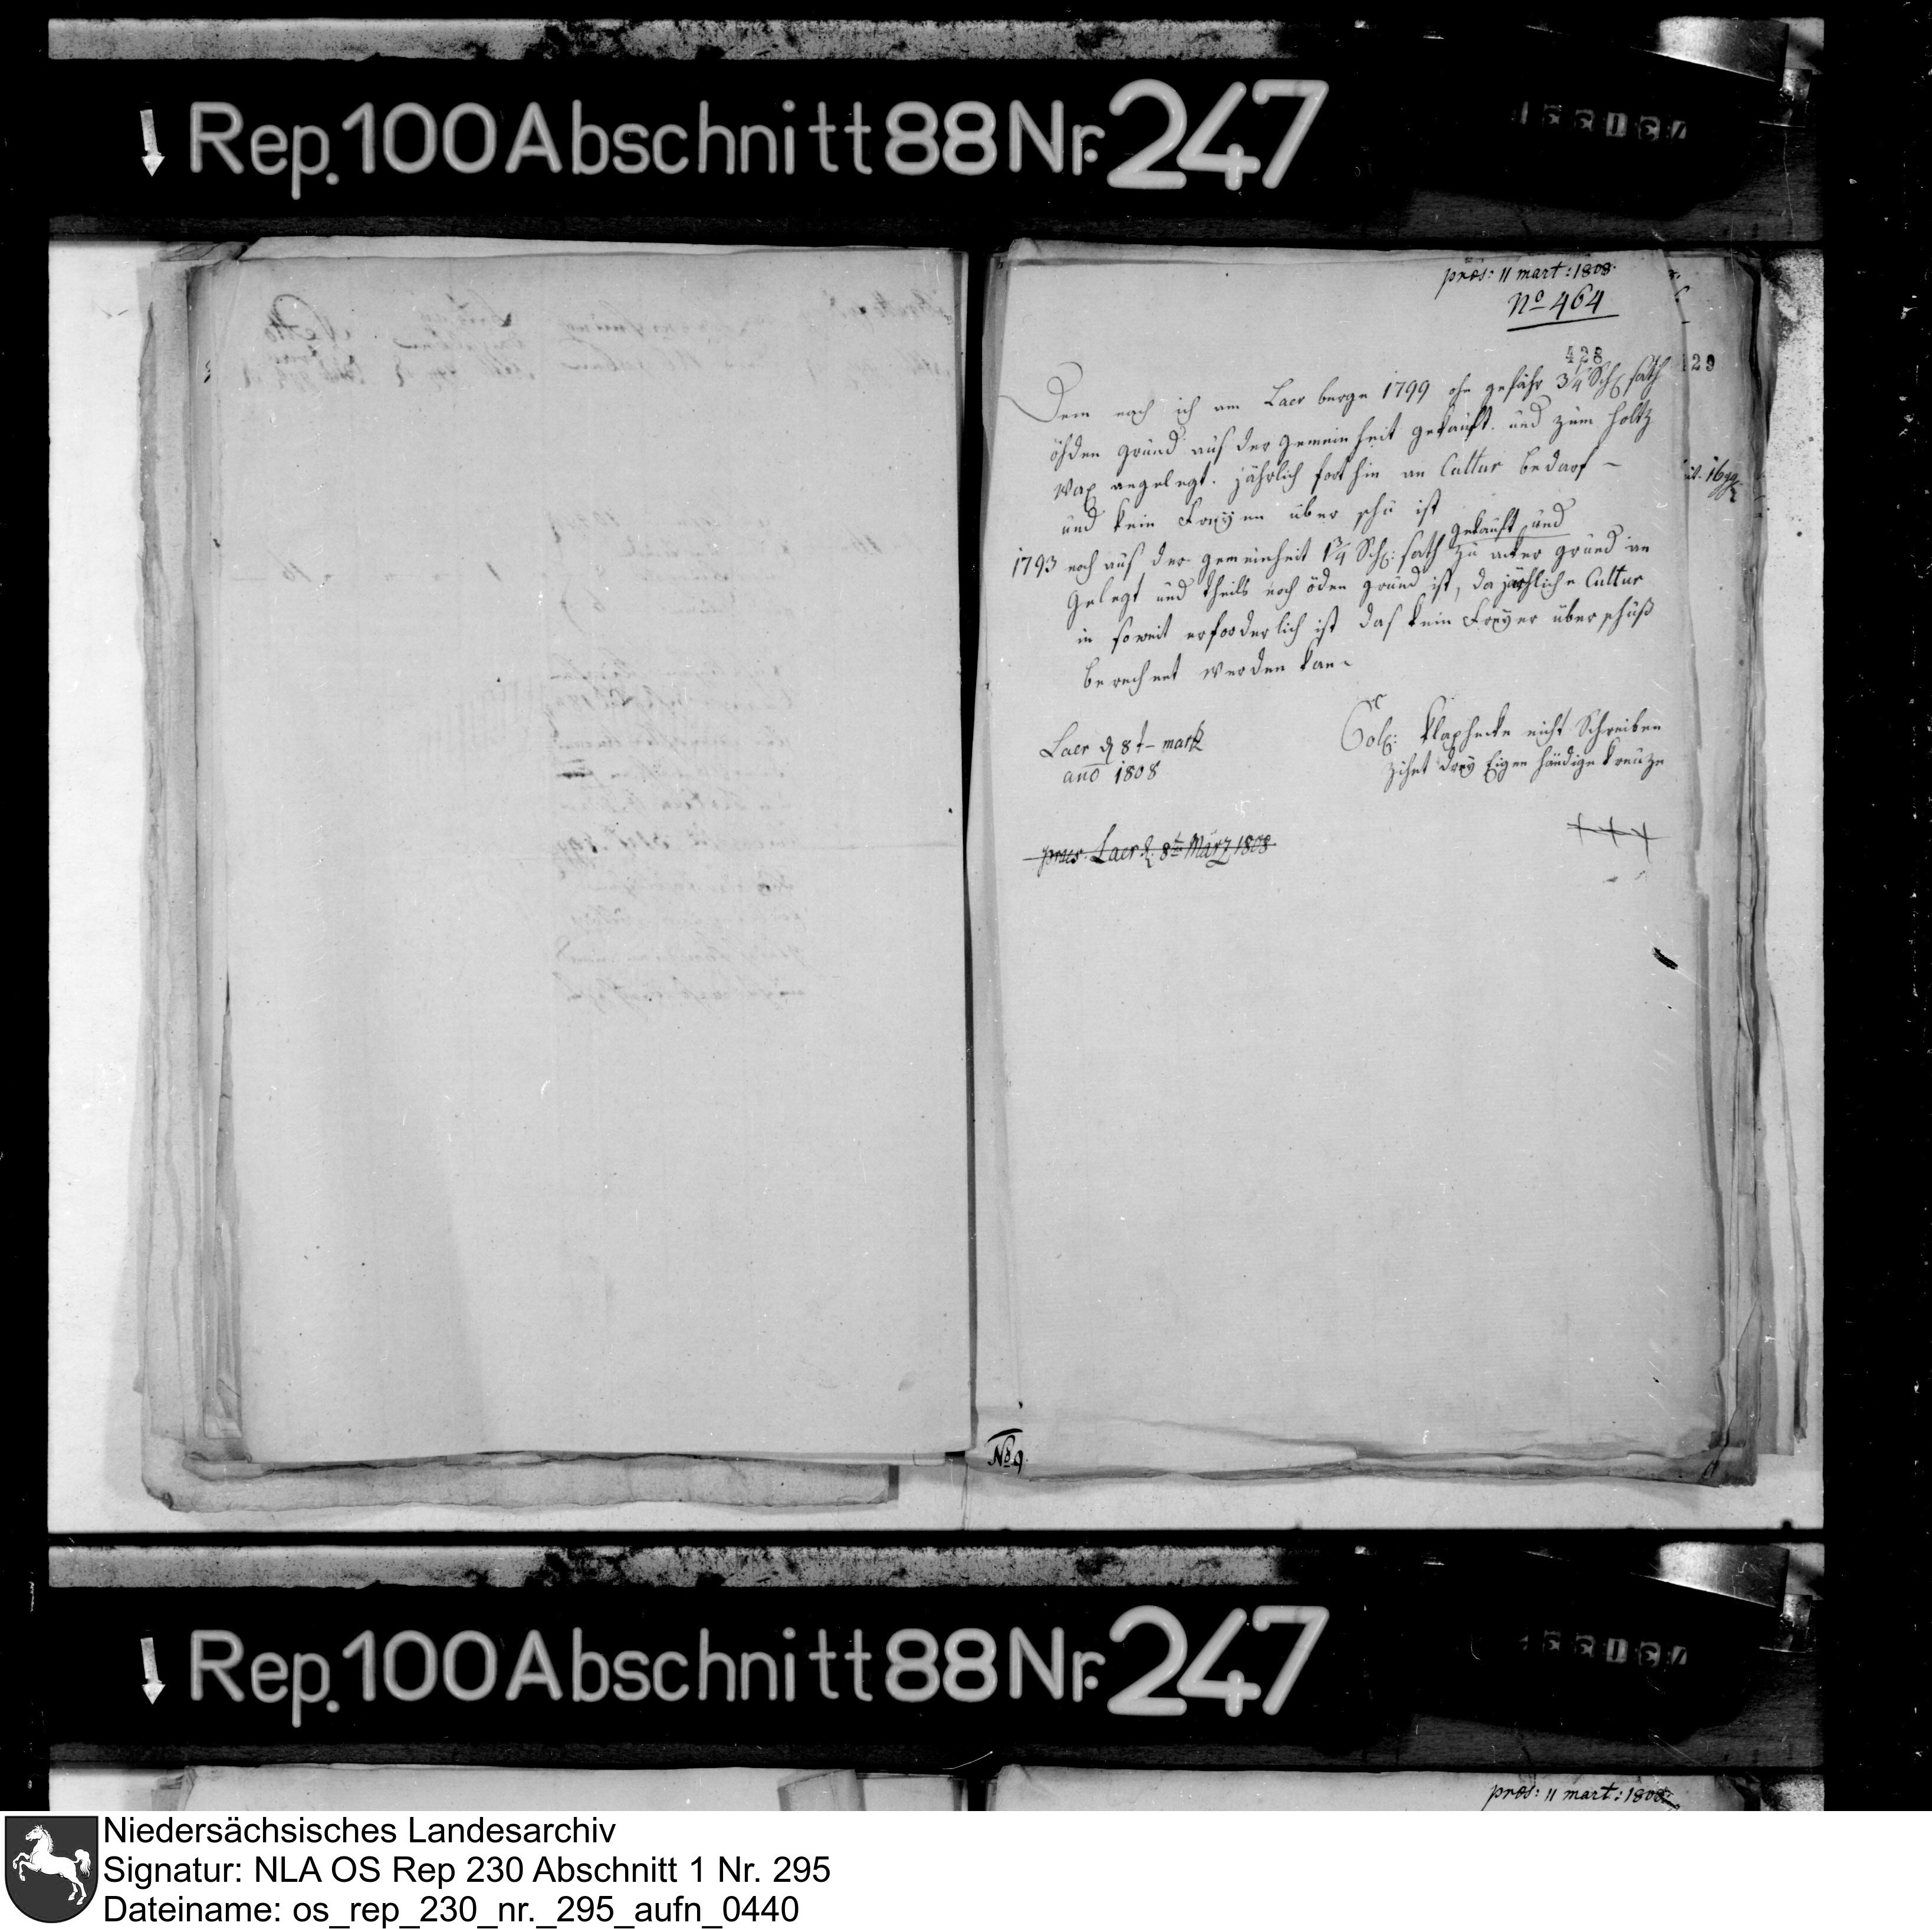 Rep. 100 Abschnitt 88 Nr. 247
præs: 11 mart: 1808.
No 464
428
Dem nach ich am Laer berge 1799 ohn gefähr 3¼ Sch: sath
öhden grund aus der gemeinheit gekauft. und zum holtz
wax angelegt. jährlich fort hin an Cultur bedarf –
und kein Freyen über schü ist
gekauft und
1793 noch aus der gemeinheit 1¾ Sch: sath zu acker grund an
gelegt und theils noch öden grund ist, da jährliche Cultur
in soweit erforderlich ist das kein Freyer überschuß
berechnet werden kan
129
16 gg
Laer d 8t – martz
ano 1808
Col: Klaphecke nicht Schreiben
zihet drey Eigen händige kreuze
+++
praes. Laer d. 8ten März 1808
No 9
Rep. 100 Abschnitt 88 Nr. 247
præs: 11 mart: 1808
Niedersächsisches Landesarchiv
Signatur: NLA OS Rep 230 Abschnitt 1 Nr. 295
Dateiname: os_rep_230_nr._295_aufn_0440